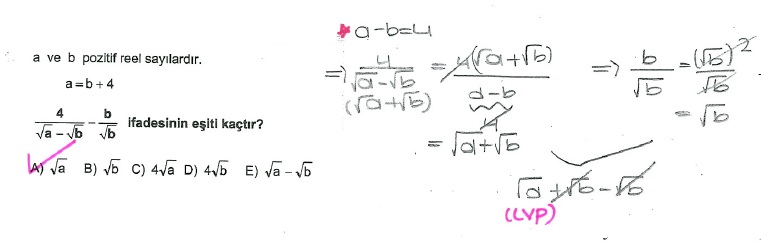 a ve b pozitif reel sayılardır.
a = b + 4
4/(√a – √b) – b/√b ifadesinin eşiti kaçtır?
A) √a B) √b C) 4√a D) 4√b E) √a – √b
* a-b=4
=> 4/(√a-√b) = 4(√a+√b)/(a-b)
(√a+√b)
4
= √a+√b
=> b/√b = (√b)²/√b
= √b
√a+√b-√b
(CVP)